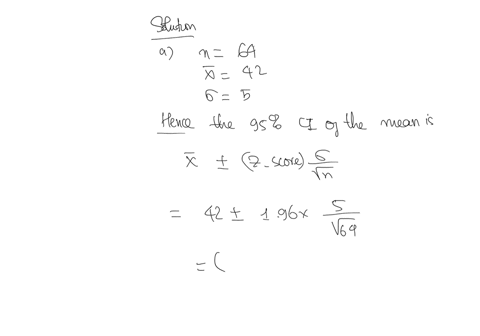 Solution
a) n = 64
x̄ = 42
σ = 5
Hence the 95% CI of the mean is
x̄ ± (Z-score) σ/√n
= 42 ± 1.96 × 5/√64
= (